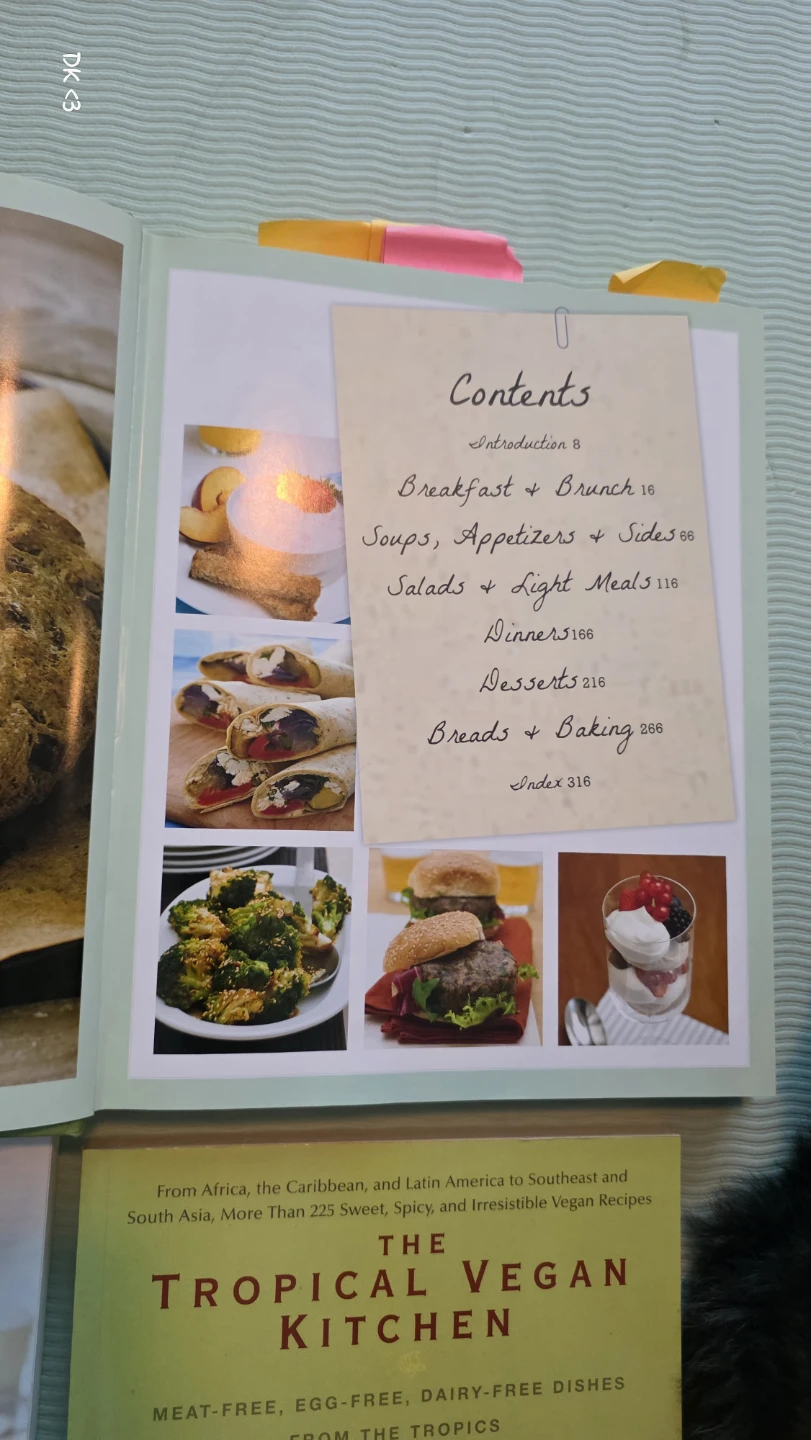 DK <3
Contents
Introduction 8
Breakfast & Brunch 16
Soups, Appetizers & Sides 66
Salads & Light Meals 116
Dinners 166
Desserts 216
Breads & Baking 266
Index 316
From Africa, the Caribbean, and Latin America to Southeast and
South Asia, More Than 225 Sweet, Spicy, and Irresistible Vegan Recipes
THE
TROPICAL VEGAN
KITCHEN
MEAT-FREE, EGG-FREE, DAIRY-FREE DISHES
FROM THE TROPICS